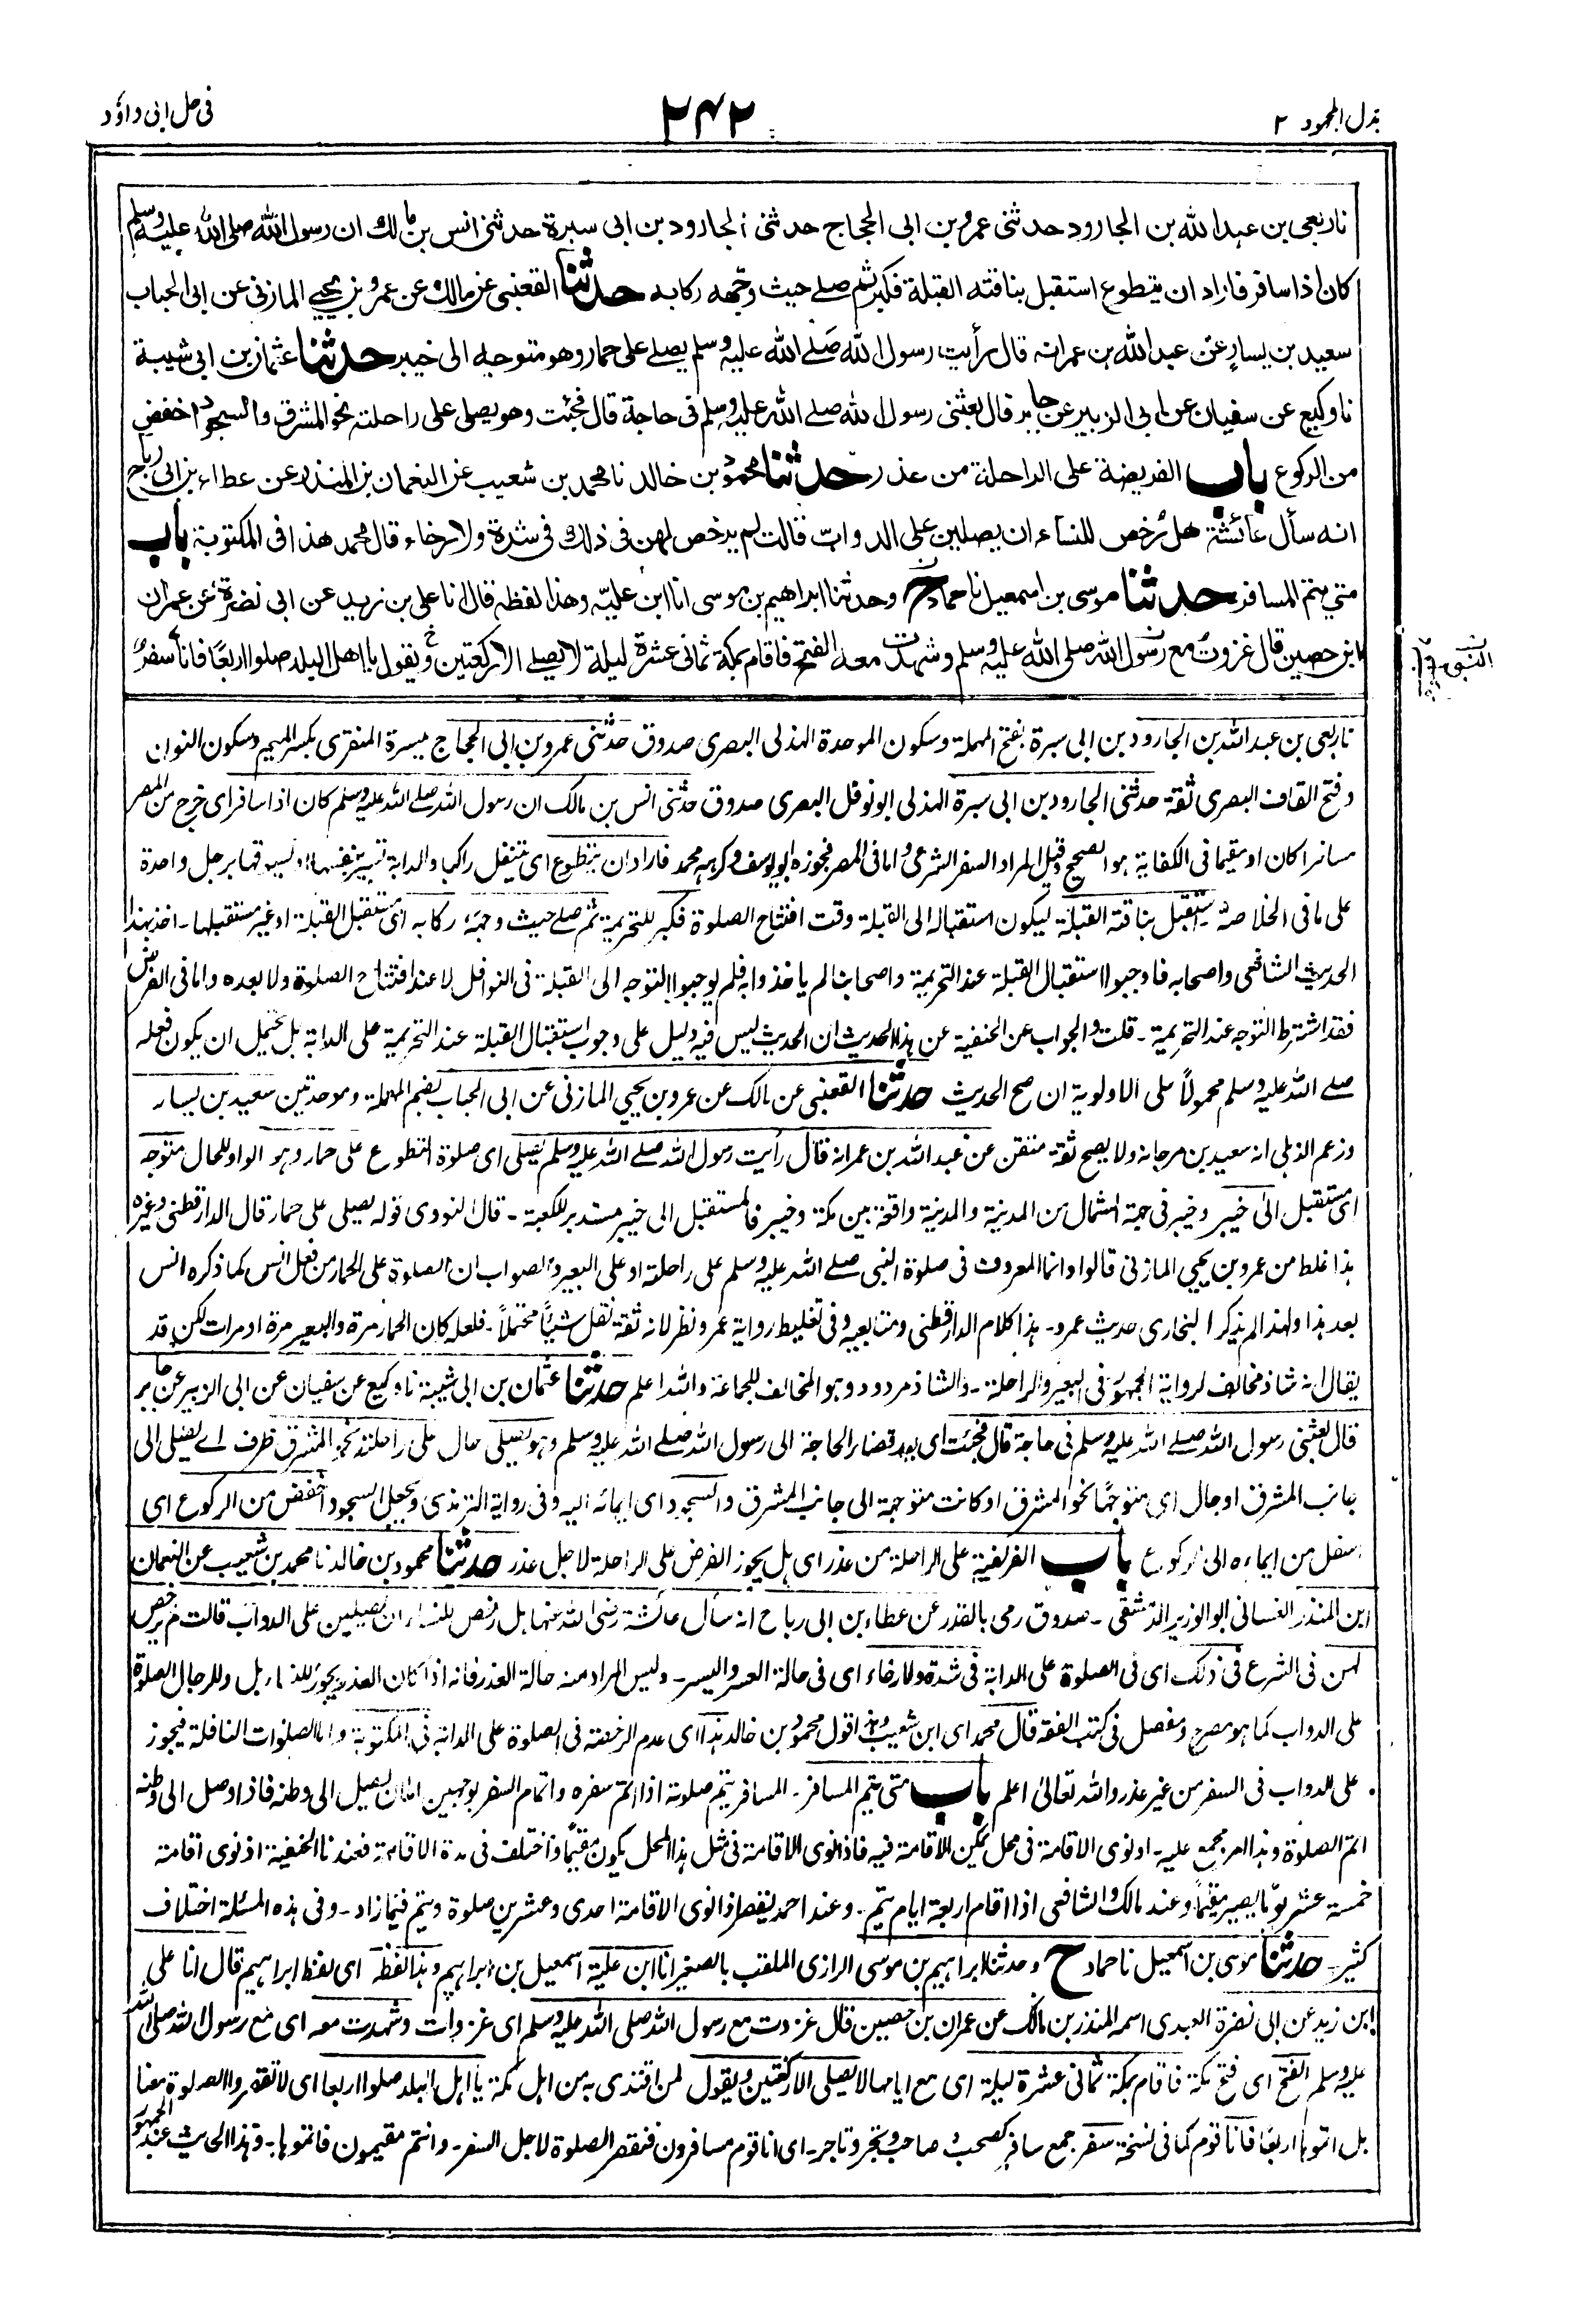 بذل المجهود ٢
٢٤٢
فی حل ابی داؤد
ناربعی بن عبدالله بن الجارود حدثنی عمرو بن ابی الحجاج حدثنی الجارود بن ابی سبرة حدثنی انس بن مالك ان رسول الله صلی الله علیه وسلم
كان اذا سافر فاراد ان یتطوع استقبل بناقته القبلة فكبر ثم صلے حیث وجّهه ركابه حدثنا القعنبی عن مالك عن عمرو بن یحیے المازنی عن ابی الحباب
سعید بن یسار عن عبد الله بن عمر انه قال رأیت رسول الله صلے الله علیه وسلم یصلے علی حمار وهو متوجه الی خیبر حدثنا عثمان بن ابی شیبة
نا وكیع عن سفیان عن ابی الزبیر عن جابر قال بعثنی رسول الله صلے الله علیه وسلم فی حاجة قال فجئت وهو یصلی علی راحلته نحو المشرق والسجود اخفض
من الركوع باب الفریضة علی الراحلة من عذر حدثنا محمود بن خالد نا محمد بن شعیب عن النعمان بن المنذر عن عطاء بن ابی رباح
انه سأل عائشة هل رُخص للنساء ان یصلین علی الدواب قالت لم یرخص لهن فی ذلك فی شدة ولا رخاء قال محمد هذا فی المكتوبة باب
متی یتم المسافر حدثنا موسی بن اسمعیل نا حماد ح وحدثنا ابراهیم بن موسی انا ابن علیّه وهذا لفظه قال انا علی بن زید عن ابی نضرة عن عمران
ابن حصین قال غزوت مع رسول الله صلی الله علیه وسلم وشهدت معه الفتح فاقام بمكة ثمانی عشرة لیلة لا یصلے الا ركعتین ویقول یا اهل البلد صلوا اربعًا فانا سفر
النبی
ناربعی بن عبد الله بن الجارود بن ابی سبرة بفتح المهملة وسكون الموحدة الهذلی البصری صدوق حدثنی عمرو بن ابی الحجاج میسرة المنقری بكسر المیم وسكون النون
وفتح القاف البصری ثقة حدثنی الجارود بن ابی سبرة الهذلی ابو نوفل البصری صدوق حدثنی انس بن مالك ان رسول الله صلے الله علیه وسلم كان اذا سافر ای خرج من المصر
مسافرا كان او مقیما فی الكفایة هو الصحیح وقیل المراد السفر الشرعی واما فی المصر فجوزه ابو یوسف وكرهه محمد فاراد ان یتطوع ای یتنفل راكبا والدابة تسیر بنفسها او یسوقها برجل واحدة
علی ما فی الخلاصة یستقبل بناقته القبلة لیكون استقباله الی القبلة وقت افتتاح الصلوة فكبر للتحریمة ثم صلے حیث وجهه ركابه ای مستقبل القبلة او غیر مستقبلها۔ اخذ بهذا
الحدیث الشافعی واصحابه فاوجبوا استقبال القبلة عند التحریمة واصحابنا لم یاخذوا به فلم یوجبوا التوجه الی القبلة فی النوافل لا عند افتتاح الصلوة ولا بعده واما فی الفرائض
فقد اشترط التوجه عند التحریمة۔ قلت والجواب عن الحنفیة عن هذا الحدیث ان الحدیث لیس فیه دلیل علی وجوب استقبال القبلة عند التحریمة علی الدابة بل یحتمل ان یكون فعله
صلے الله علیه وسلم محمولاً علی الاولویة ان صح الحدیث حدثنا القعنبی عن مالك عن عمرو بن یحیی المازنی عن ابی الحباب بضم المهملة وموحدتین سعید بن یسار
وزعم الذهلی انه سعید بن مرجانه ولا یصح ثقة متقن عن عبد الله بن عمر انه قال رأیت رسول الله صلے الله علیه وسلم یصلی ای صلوة التطوع علی حمار وهو الواو للحال متوجه
ای مستقبل الی خیبر وخیبر فی جهة الشمال من المدینة والمدینة واقعة بین مكة وخیبر فالمستقبل الی خیبر مستدبر للكعبة۔ قال النووی قوله یصلی علی حمار قال الدارقطنی وغیره
هذا غلط من عمرو بن یحیی المازنی قالوا وانما المعروف فی صلوة النبی صلے الله علیه وسلم علی راحلته او علی البعیر والصواب ان الصلوة علی الحمار من فعل انس كما ذكره انس
بعد هذا ولهذا لم یذكر البخاری حدیث عمرو۔ هذا كلام الدارقطنی ومتابعیه وفی تغلیط روایة عمرو نظر لانه ثقة نقل شیئًا محتملاً۔ فلعله كان الحمار مرة والبعیر مرة او مرات لكن قد
یقال انه شاذ مخالف لروایة الجمهور فی البعیر والراحلة۔ والشاذ مردود وهو المخالف للجماعة والله اعلم حدثنا عثمان بن ابی شیبة نا وكیع عن سفیان عن ابی الزبیر عن جابر
قال بعثنی رسول الله صلے الله علیه وسلم فی حاجة قال فجئت ای بعد قضاء الحاجة الی رسول الله صلے الله علیه وسلم وهو یصلی حال علی راحلته نحو المشرق ظرف اے یصلی الی
جانب المشرق او حال ای متوجهًا نحو المشرق او كانت متوجهة الی جانب المشرق والسجود ای ایمائه الیه وفی روایة الترمذی ویجعل السجود اخفض من الركوع ای
اسفل من ایمائه الی الركوع باب الفریضة علی الراحلة من عذر ای هل یجوز الفرض علی الراحلة لاجل عذر حدثنا محمود بن خالد نا محمد بن شعیب عن النعمان
ابن المنذر الغسانی ابو الوزیر الدمشقی۔ صدوق رمی بالقدر عن عطاء بن ابی رباح انه سأل عائشة رضی الله عنها هل رخص للنساء ان یصلین علی الدواب قالت لم یرخص
لهن فی الشرع فی ذلك ای فی الصلوة علی الدابة فی شدة ولا رخاء ای فی حالة العسر والیسر۔ ولیس المراد منه حالة العذر فانه اذا كان العذر یجوز للنساء بل وللرجال الصلوة
علی الدواب كما هو مصرح ومفصل فی كتب الفقه قال محمد ای ابن شعیب وهذا قول محمود بن خالد هذا ای عدم الرخصة فی الصلوة علی الدابة فی المكتوبة واما الصلوات النافلة فیجوز
علی الدواب فی السفر من غیر عذر والله تعالیٰ اعلم باب متی یتم المسافر۔ المسافر یتم صلوته اذا اتم سفره واتمام السفر بوجهین اما ان یصل الی وطنه فاذا وصل الی وطنه
اتم الصلوة وهذا امر مجمع علیه۔ او نوی الاقامة فی محل یمكن الاقامة فیه فاذا نوی الاقامة فی مثل هذا المحل یكون مقیمًا واختلف فی مدة الاقامة فعندنا الحنفیة اذ نوی اقامة
خمسة عشر یومًا یصیر مقیمًا وعند مالك والشافعی اذا اقام اربعة ایام یتم۔ وعند احمد یقصر اذا نوی الاقامة احدی وعشرین صلوة ویتم فیما زاد۔ وفی هذه المسئلة اختلاف
كثیر حدثنا موسی بن اسمعیل نا حماد ح وحدثنا ابراهیم بن موسی الرازی الملقب بالصغیر انا ابن علیة اسمعیل بن ابراهیم وهذا لفظه ای لفظ ابراهیم قال انا علی
ابن زید عن ابی نضرة العبدی اسمه المنذر بن مالك عن عمران بن حصین قال غزوت مع رسول الله صلی الله علیه وسلم ای غزوات وشهدت معه ای مع رسول الله صلی الله
علیه وسلم الفتح ای فتح مكة فاقام بمكة ثمانی عشرة لیلة ای مع ایامها لا یصلی الا ركعتین ویقول لمن اقتدی به من اهل مكة یا اهل البلد صلوا اربعا ای لا تقصروا الصلوة معنا
بل اتموها اربعًا فانا قوم كما فی نسخة سفر جمع سافر كصحب وصاحب وتجر وتاجر۔ ای انا قوم مسافرون فنقصر الصلوة لاجل السفر۔ وانتم مقیمون فاتموها۔ وهذا الحدیث عند الجمهور